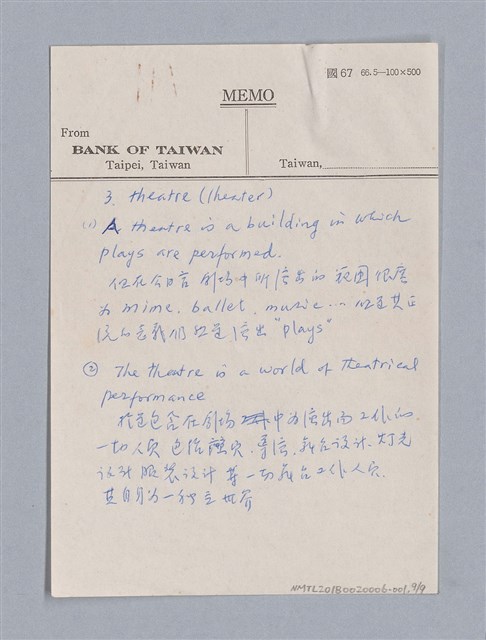 國67 66.5—100×500
MEMO
From
BANK OF TAIWAN
Taipei, Taiwan
Taiwan,
3. theatre (theater)
(1) A theatre is a building in which
plays are performed.
但在今日言 劇場中所演出的 範圍很廣
如 mime, ballet, music ... 但是其正
統的意義仍然是演出 "plays"
② The theatre is a world of theatrical
performance
於是包含在劇場中為演出而工作的
一切人員 包括演員、導演、舞台設計、灯光
設計 服裝設計 等一切舞台工作人員
其自身為一独立世界
NMTL20180020006-001, 9/9